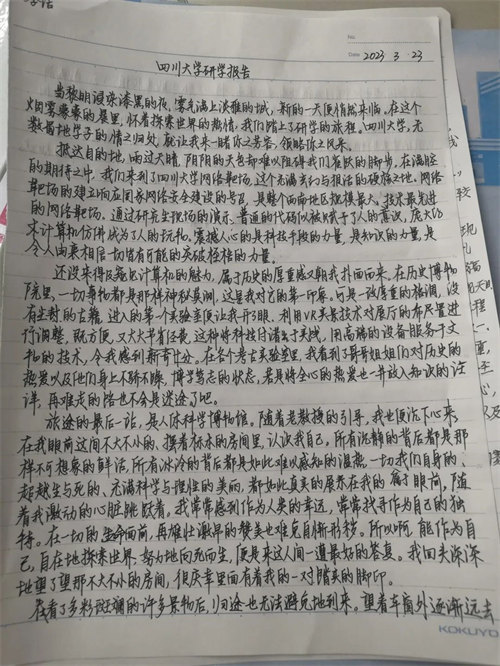 No.
Date 2023. 3. 23
四川大学研学报告
当黎明浸染漆黑的夜,雾气涌上淡雅的城,新的一天便悄然来临。在这个
烟雾袅袅的晨里,怀着探索世界的热情,我们踏上了研学的旅程。四川大学,无
数莘莘学子的情之归处,就让我来一睹你之芳容,领略你之风采。
抵达目的地,雨过天晴,阴阴的天色却难以阻碍我们雀跃的脚步。在满腔
的期待之中,我们来到了四川大学网络靶场,这个充满玄幻与报活的硬核之地。网络
靶场的建立响应国家网络安全建设的号召,是整个西南地区规模最大、技术最先进
的网络靶场。通过研究生现场的演示,普通的代码似被赋予了人的意识,庞大的
计算机仿佛成为了人的玩物。震撼人心的是科技手段的力量,是知识的力量,是
令人由衷相信一切皆有可能的突破桎梏的力量。
还没来得及走出计算机的魅力,属于历史的厚重感又朝我扑面而来。在历史博物
院里,一切事物都是那样神秘莫测,这是我对它的第一印象。可是一改厚重的格调,没
有尘封的古籍,进入的第一个实验室便让我开了眼。利用VR实景技术对展厅的布局置进
行调整,既方便,又大大节省经费,这种将科技付诸于实战,用高端的设备服务于文
物的技术,令我感到新奇十分。在各个考古实验室里,我看到了哥哥姐姐们对历史的
热爱以及他们身上不骄不躁、博学笃志的状态,若是将全心的热爱也一并放入知识的汪
洋,再难走的路也不会是迷途了吧。
旅途的最后一站,是人体科学博物馆。随着老教授的引导,我也便沉下心来,
在我眼前这间不大不小的、摆着标本的房间里,认识我自己。所有沉静的背后都是那
样不可想象的鲜活,所有冰冷的背后都是如此难以感知的温热,一切我们自身的、
超越生与死的、充满科学与理性的美丽,都如此真实的展示在我的眼前,随
着我激动的心脏跳跃着,我常常感到作为人类的幸运,常常找寻作为自己的独
特。在一切的生命面前,再雄壮激昂的赞美也难免自惭形秽。所以啊,能作为自
己,自在地探索世界,努力地向死而生,便是来这人间一遭最好的答复。我回头深深
地望了望那不大不小的房间,但庆幸里面有着我的一对踏实的脚印。
在看了多彩斑斓的许多景物后,归途也无法避免地到来。望着车窗外逐渐远去
KOKUYO